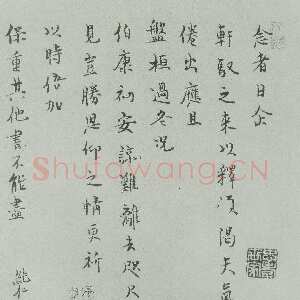 念者日企
軒馭之来以釋須渴天氣
倦出應且
盤桓過冬況
伯康初安諒難離去咫尺
見豈勝思仰之情更祈
以時倍加
保重其他書不能盡
Shufawang.CN